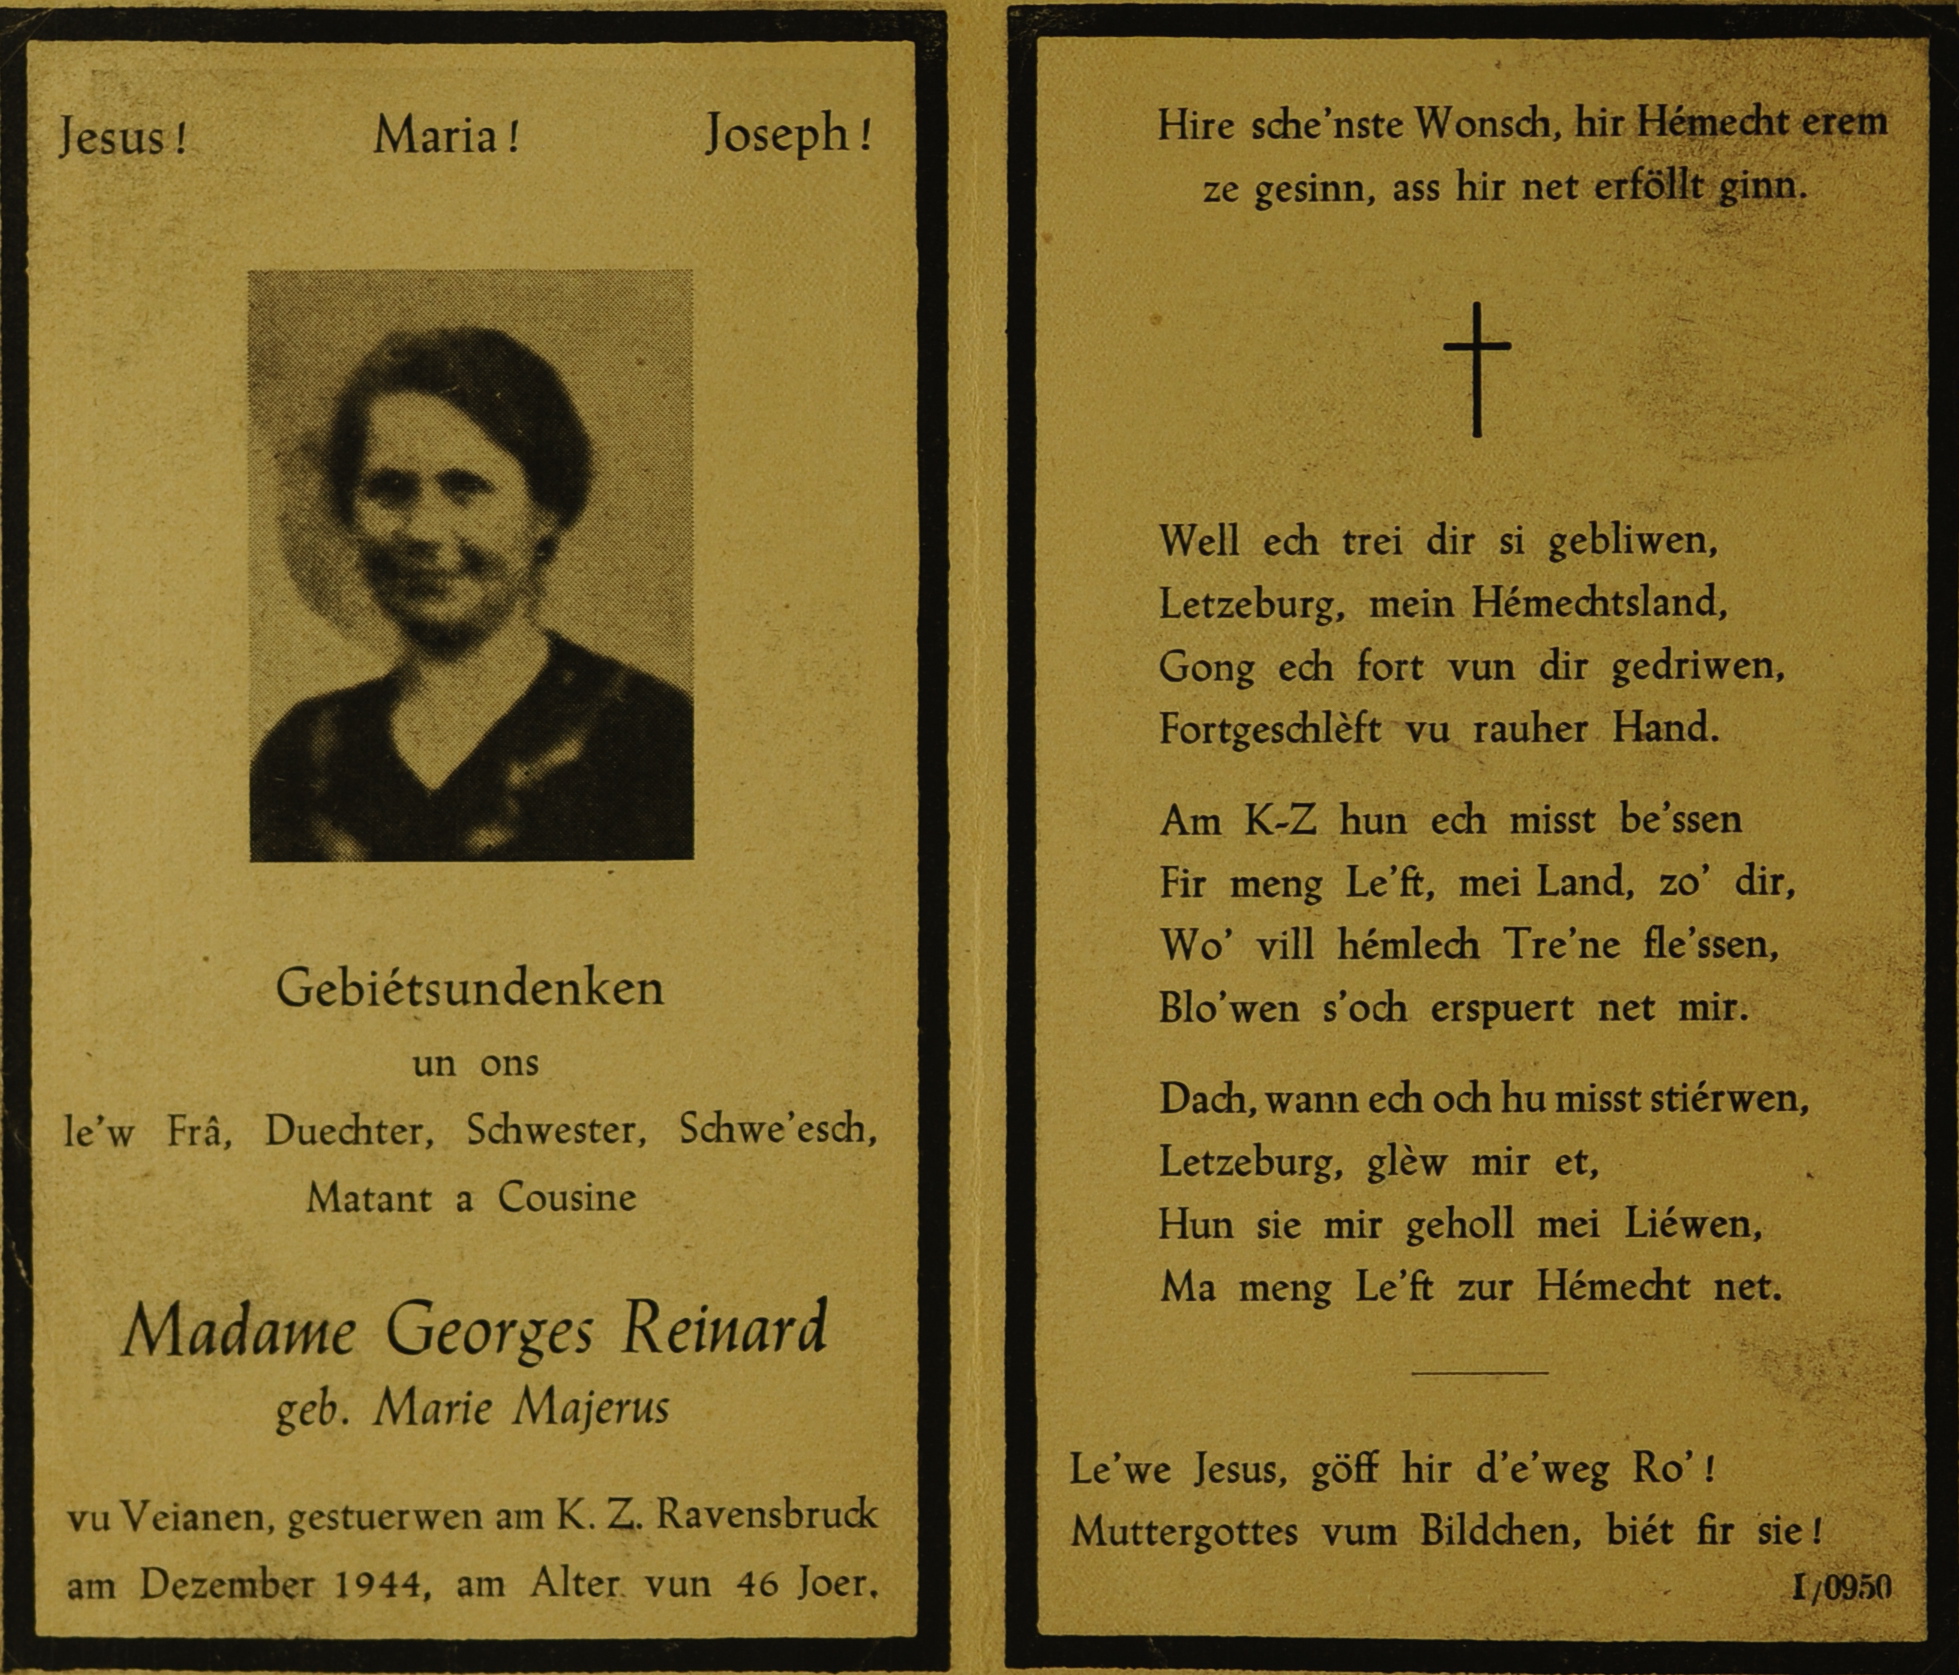 Jesus! Maria! Joseph!
Gebiétsundenken
un ons
le'w Frâ, Duechter, Schwester, Schwe'esch,
Matant a Cousine
Madame Georges Reinard
geb. Marie Majerus
vu Veianen, gestuerwen am K. Z. Ravensbruck
am Dezember 1944, am Alter vun 46 Joer.
Hire sche'nste Wonsch, hir Hémecht erem
ze gesinn, ass hir net erföllt ginn.
Well ech trei dir si gebliwen,
Letzeburg, mein Hémechtsland,
Gong ech fort vun dir gedriwen,
Fortgeschlèft vu rauher Hand.
Am K-Z hun ech misst be'ssen
Fir meng Le'ft, mei Land, zo' dir,
Wo' vill hémlech Tre'ne fle'ssen,
Blo'wen s'och erspuert net mir.
Dach, wann ech och hu misst stiérwen,
Letzeburg, glèw mir et,
Hun sie mir geholl mei Liéwen,
Ma meng Le'ft zur Hémecht net.
Le'we Jesus, göff hir d'e'weg Ro'!
Muttergottes vum Bildchen, biét fir sie!
I/0950